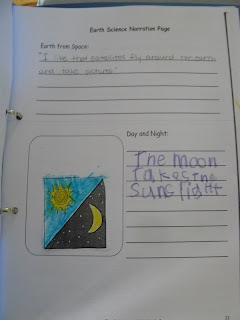 Earth Science Narration Page
Earth from Space:
"I like that satellites fly around the earth
and take pictures"
Day and Night:
The moon
takes the
sunslight